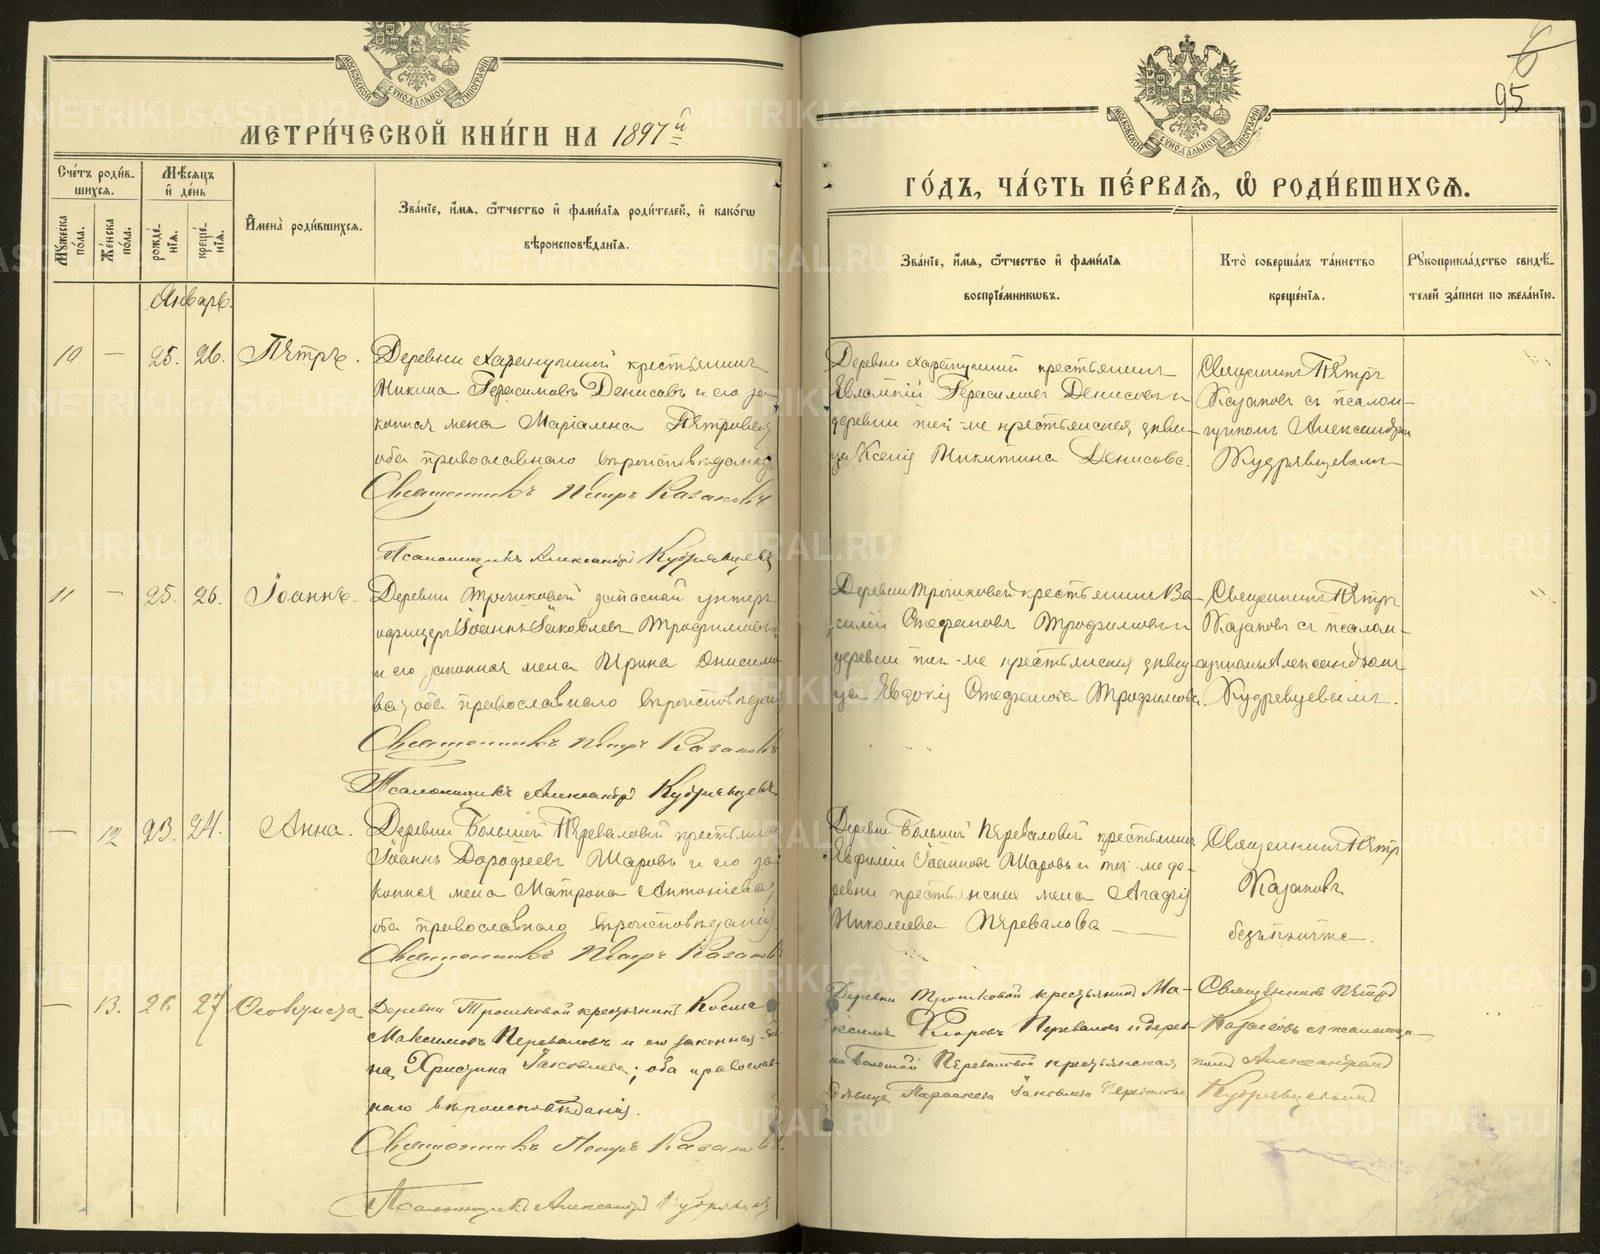 МЕТРИ́ЧЕСКОЙ КНИ́ГИ НА 1897 й
Счéтъ роди́в-
шихся.
Мѣсяцъ
и день
Мужеска
пола.
Женска
пола.
рожде-
нія.
креще-
нія.
Имена роди́вшихся.
Зва́ніе, имя, отчество и фами́лія роди́телей, и како́гѡ
вѣроисповѣданія.
Январь.
10 — 25. 26. Пётръ.
Деревни крестьянинъ
Никита Герасимовъ Денисовъ и его за-
конная жена Маріамна Петровна,
оба православнаго вѣроисповѣданія
Священникъ Петръ Казаковъ
Псаломщикъ Александръ Кудрявцевъ
11 — 25. 26. Іоаннъ.
Деревни Трошковой запасной унтеръ
офицеръ Іоаннъ Іаковлевъ Трофимовъ
и его законная жена Ирина Онисимо-
ва, оба православнаго вѣроисповѣданія
Священникъ Петръ Казаковъ
Псаломщикъ Александръ Кудрявцевъ
— 12 23. 24. Анна.
Деревни Большой Переваловой крестьянинъ
Іоаннъ Дорофеевъ Шаровъ и его за-
конная жена Матрона Антоніева,
оба православнаго вѣроисповѣданія
Священникъ Петръ Казаковъ
— 13. 26 27
Деревни Трошковой крестьянинъ Косма
Максимовъ Переваловъ и его законная же-
на, Христина Іаковлева; оба православ-
наго вѣроисповѣданія.
Священникъ Петръ Казаковъ
Псаломщикъ Александръ Кудрявцевъ
95
ГО́ДЪ, ЧА́СТЬ ПЕ́РВАЯ, Ѡ РОДИ́ВШИХСЯ.
Зва́ніе, имя, отчество и фами́лія
воспріе́мникѡвъ.
Кто̀ соверша́лъ та́инство
креще́нія.
Рукоприкла́дство свидѣ́-
телей за́писи по жела́нію.
Деревни крестьянинъ
Евлампій Герасимовъ Денисовъ и
деревни той-же крестьянская дѣви-
ца Ксенія Никитина Денисова.
Священникъ Пётръ
Казаковъ съ псалом-
щикомъ Александромъ
Кудрявцевымъ
Деревни Трошковой крестьянинъ Ва-
силій Стефановъ Трофимовъ и
деревни той-же крестьянская дѣви-
ца Евдокія Стефанова Трофимова.
Священникъ Пётръ
Казаковъ съ псалом-
щикомъ Александромъ
Кудрявцевымъ.
Деревни Большой Переваловой крестьянинъ
Іоанновъ Шаровъ и той-же де-
ревни крестьянская жена Агафія
Николаева Перевалова —
Священникъ Пётръ
Казаковъ
безъ причта.
Деревни Трошковой крестьянинъ Ма-
ксимъ Егоровъ Переваловъ и дерев-
ни Большой Переваловой крестьянская
дѣвица Параскева Іаковлева Перевалова
Священникъ Пётръ
Казаковъ съ псаломщи-
комъ Александромъ
Кудрявцевымъ
METRIKI.GASO-URAL.RU